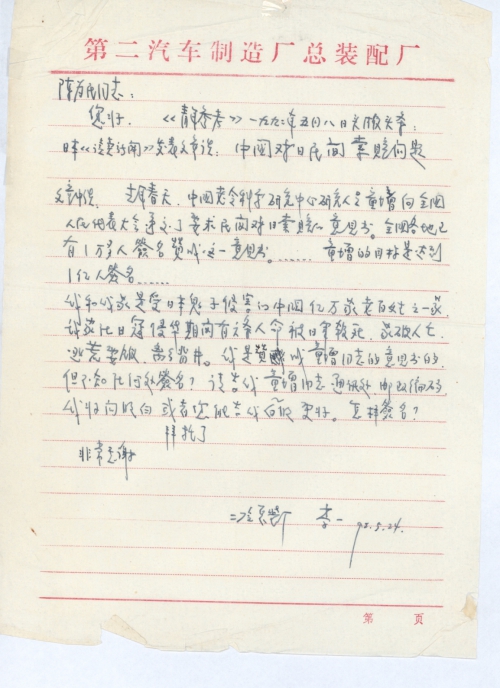 第二汽车制造厂总装配厂
陈 同志:
您好。《参考》一九九二年五月八日 头条:
日本《读卖新闻》发表文章说:中国对日民间索赔问题
文章说, 春天,中国老令科学研究中心研究人员童增向全国
人民代表大会 了要求民间对日索赔的意见书。全国各地已
有1万多人签名赞成这一意见书。…… 童增的目标是达到
1亿人签名……
我和我家是受日本鬼子侵害的中国亿万家老百姓之一家,
我家在日寇侵华期间有 人 被日军致死,家破人亡,
逃荒要饭 。我是赞成童增同志的意见书的,
但不知在何处签名?请告我童增同志通讯处邮政编码
我好向 或者您能告我 更好。怎样签名?
拜托了
非常感谢
二汽总装厂 李一 92.5.24.
第 页